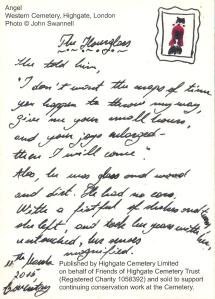 Angel
Western Cemetery, Highgate, London
Photo © John Swannell
The Hourglass
She told him,
"I don't want the maps of time
you happen to throw my way,
give me your small hours,
and your joys enlarged—
then I will come."
Alas, he was glass and wood
and dirt. He had no ears.
With a fistful of
she left and took his years with her,
untouched, his senses
magnified.
11th March
2015
Published by Highgate Cemetery Limited
on behalf of Friends of Highgate Cemetery Trust
(Registered Charity 1058392) and sold to support
continuing conservation work at the Cemetery.